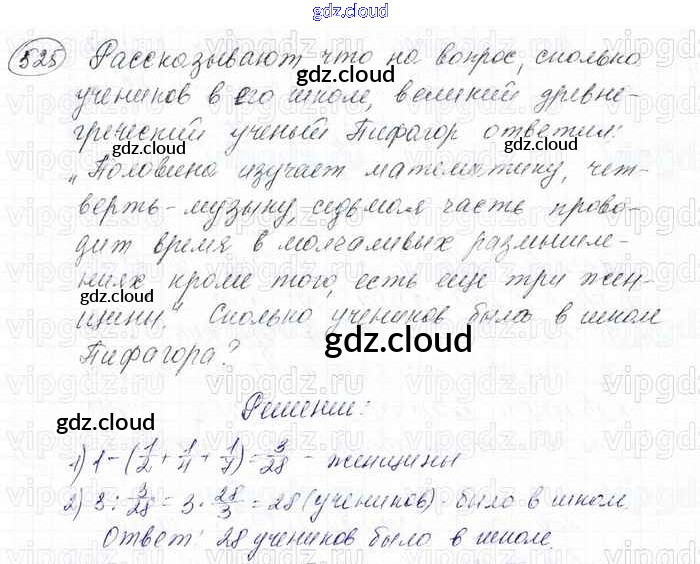 gdz.cloud
525 Рассказывают что на вопрос, сколько
gdz.cloud
учеников в его школе, великий древне-
греческий ученый Пифагор ответил:
gdz.cloud gdz.cloud
„Половина изучает математику, чет-
верть - музыку, седьмая часть прово-
gdz.cloud gdz.cloud
дит время в молчаливых размышле-
ниях кроме того, есть еще три жен-
gdz.cloud
щины." Сколько учеников было в школе
Пифагора? gdz.cloud
Решение:
gdz.cloud
1) 1 - (1/2 + 1/4 + 1/7) = 3/28 - женщины
2) 3 : 3/28 = 3 · 28/3 = 28 (учеников) было в школе.
Ответ: 28 учеников было в школе.